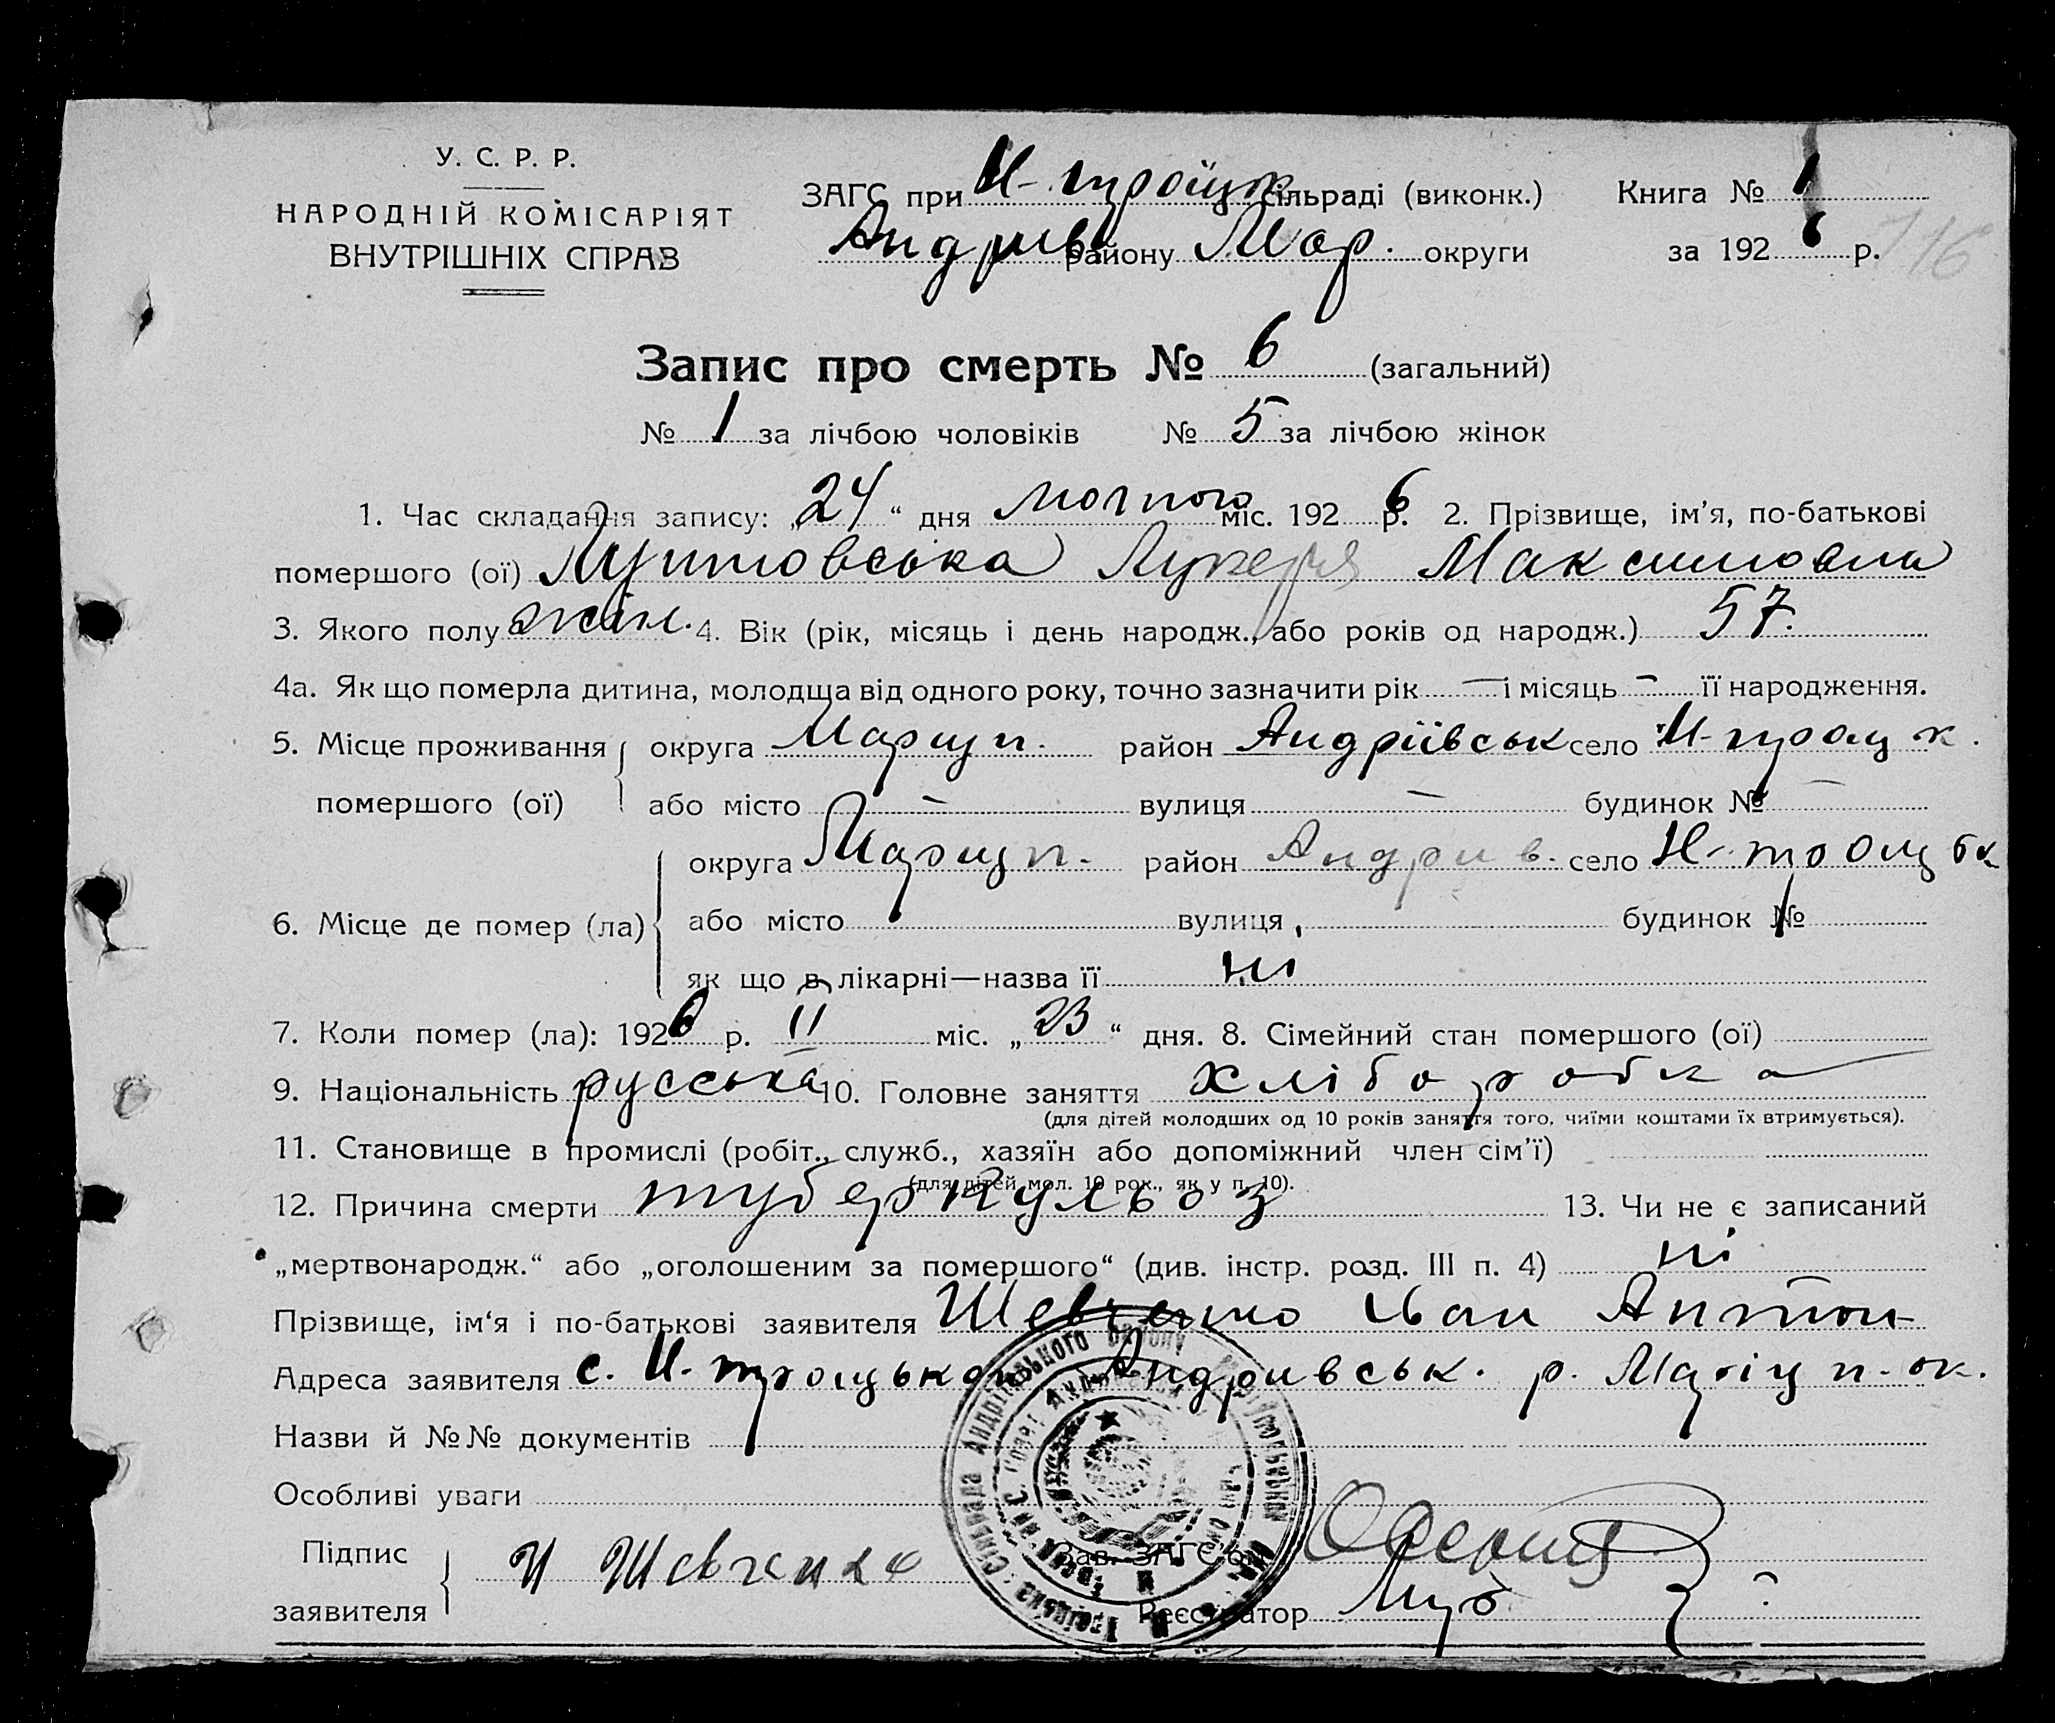 У. С. Р. Р.
НАРОДНІЙ КОМІСАРІЯТ
ВНУТРІШНІХ СПРАВ
ЗАГС при Н-троїцк сільраді (виконк.)
Андріїв району Мар. округи
Книга № 1
за 1926 р.
116
Запис про смерть № 6 (загальний)
№ 1 за лічбою чоловіків № 5 за лічбою жінок
1. Час складання запису: „24“ дня лютого міс. 1926 р. 2. Прізвище, ім'я, по-батькові
помершого (ої) Лукерія Максимовна
3. Якого полу жін. 4. Вік (рік, місяць і день народж., або років од народж.) 57.
4а. Як що померла дитина, молодша від одного року, точно зазначити рік — і місяць — її народження.
5. Місце проживання округа Маріуп. район Андріївськ село Н-троицк.
помершого (ої) або місто — вулиця — будинок № —
округа Маріуп. район Андриів. село Н-троицьк
6. Місце де помер (ла) або місто вулиця будинок №
як що в лікарні—назва її ні
7. Коли помер (ла): 1926 р. II міс. „23“ дня. 8. Сімейний стан помершого (ої)
9. Національність русська 10. Головне заняття хліборобка
(для дітей молодших од 10 років заняття того, чиїми коштами їх втримується).
11. Становище в промислі (робіт., служб., хазяїн або допоміжний член сім'ї)
(для дітей мол. 10 рок., як у п. 10).
12. Причина смерти туберкульоз 13. Чи не є записаний
„мертвонародж.“ або „оголошеним за помершого“ (див. інстр. розд. III п. 4) ні
Прізвище, ім'я і по-батькові заявителя Шевченко Іван Антон
Адреса заявителя с. Н-троицьком Андриівськ. р. Маріуп. ок.
Назви й №№ документів
Особливі уваги
Підпис
заявителя И Шевченко
Зав. ЗАГС'ом
Реєстратор